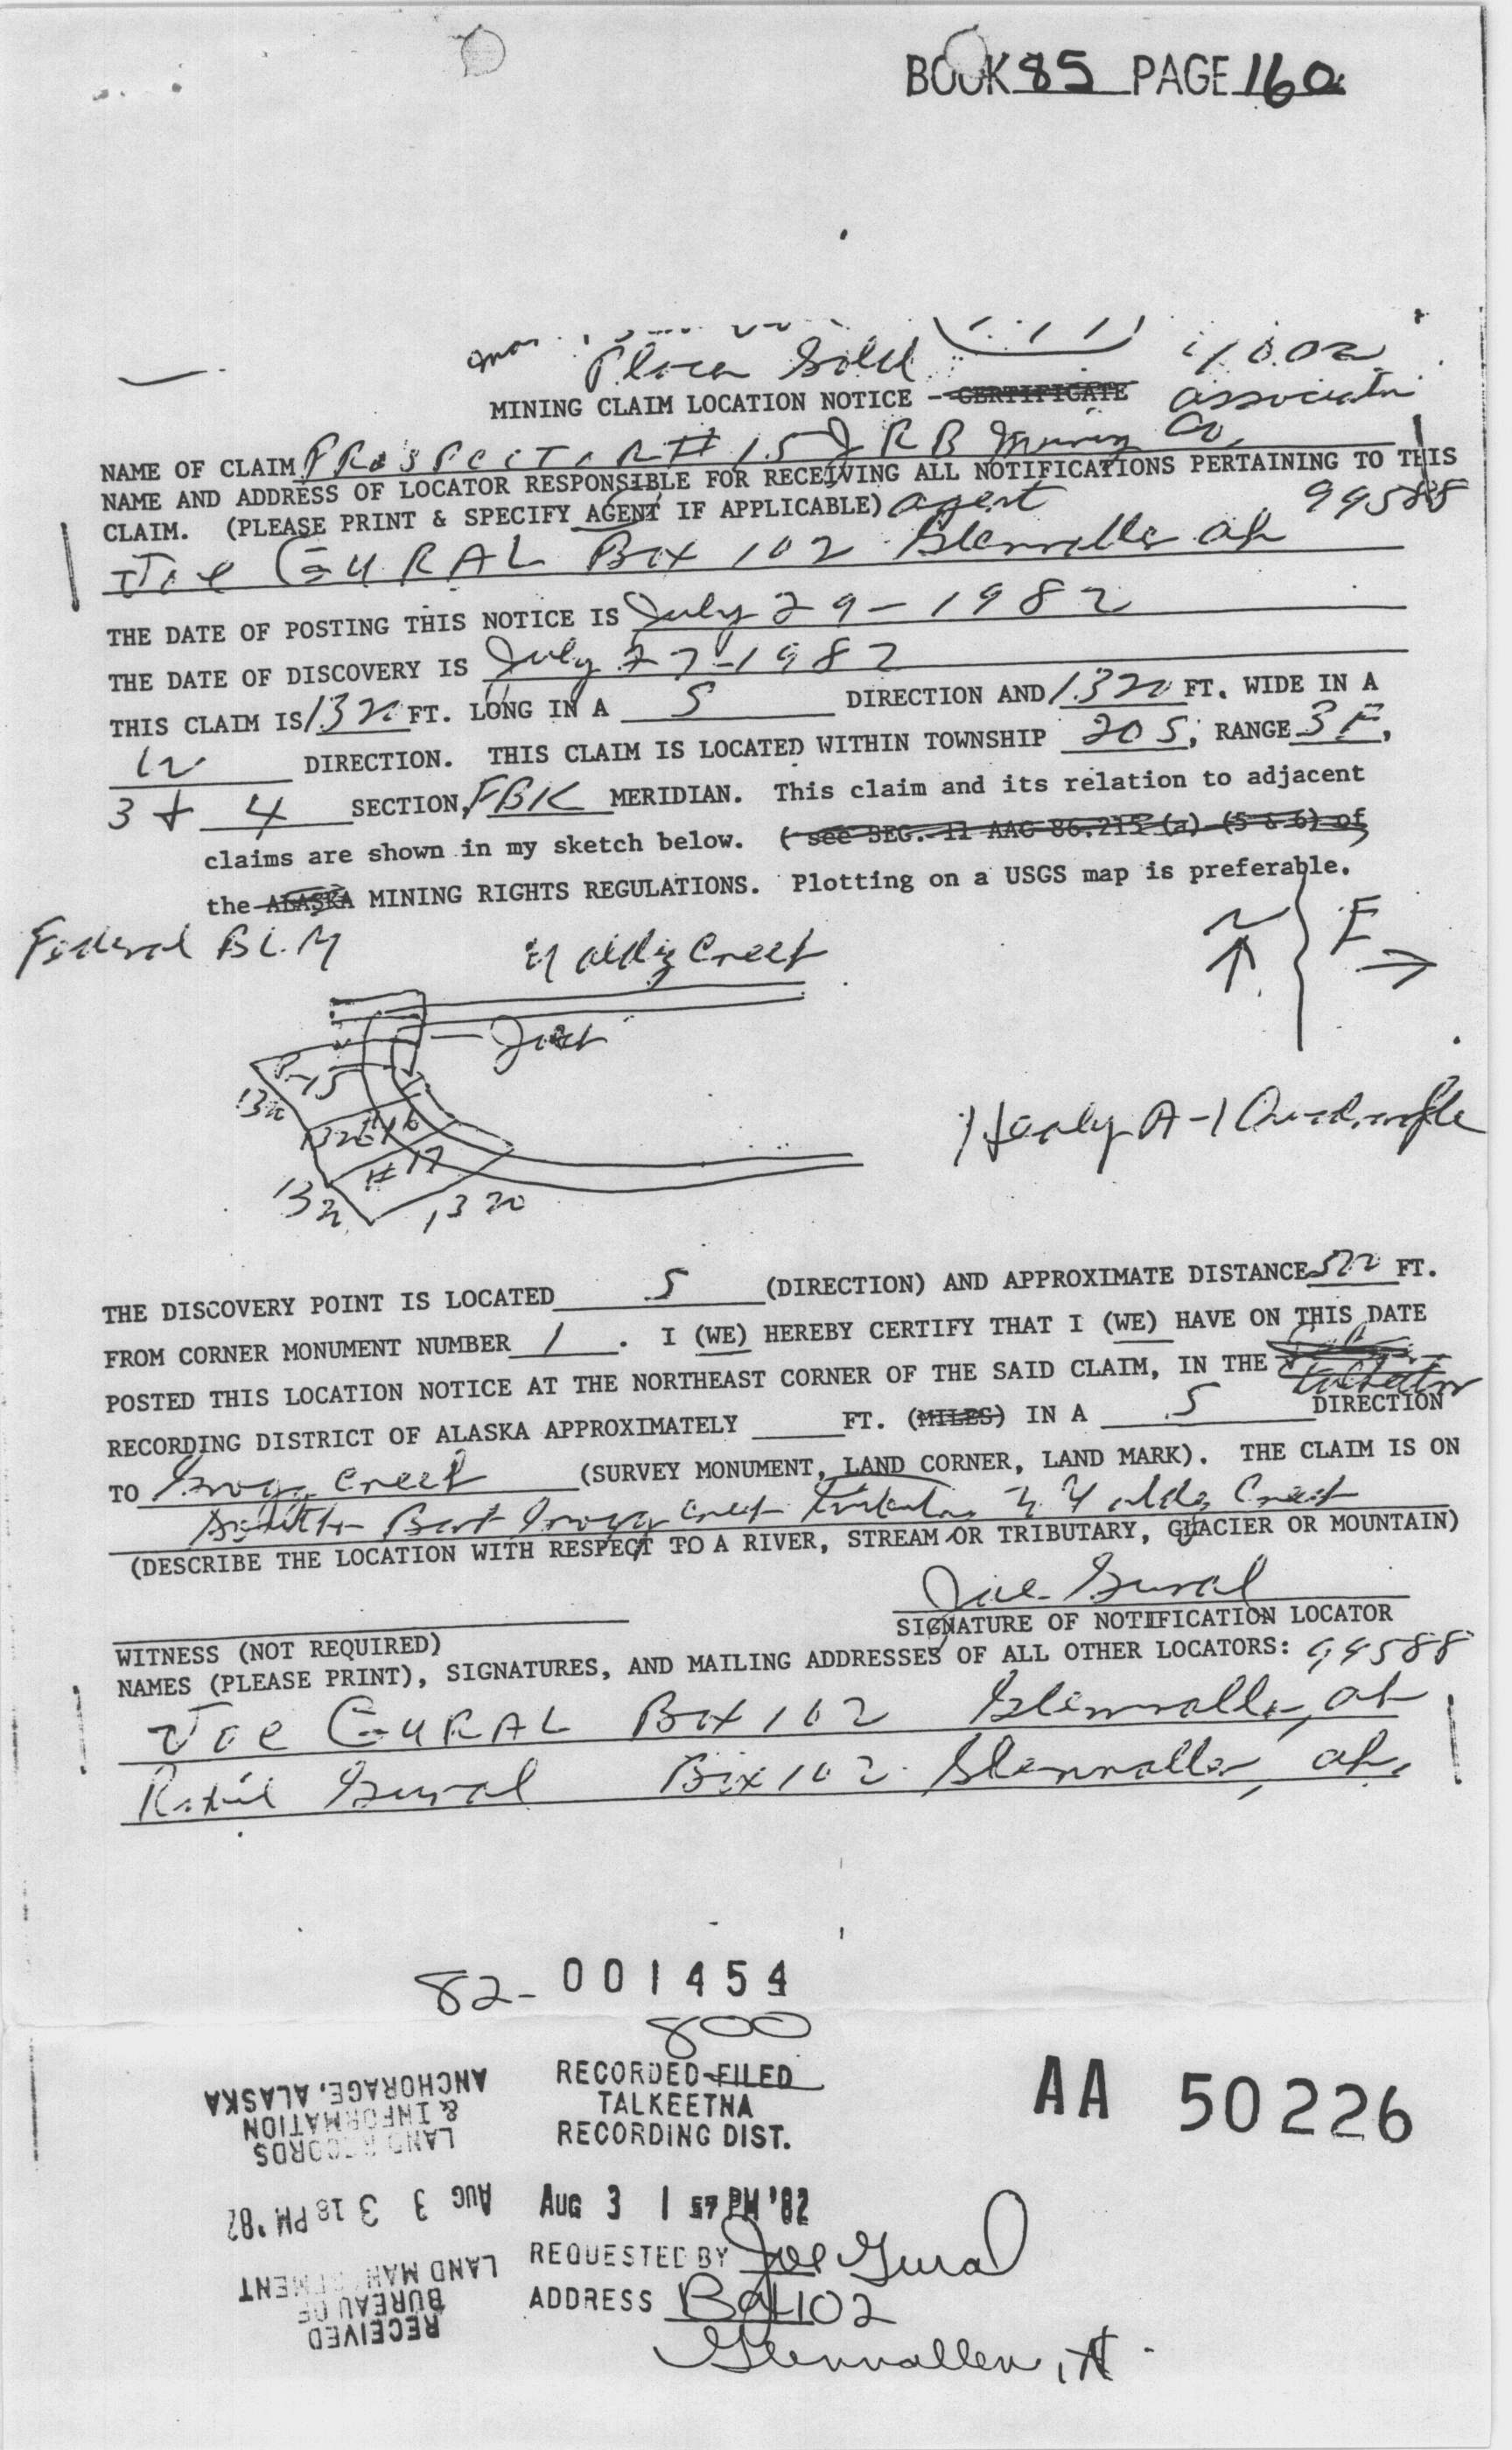 BOOK 85 PAGE 160
Placer Gold 10.00
MINING CLAIM LOCATION NOTICE - CERTIFICATE association
NAME OF CLAIM PROSPECTOR # 15 J R B Mining Co.
NAME AND ADDRESS OF LOCATOR RESPONSIBLE FOR RECEIVING ALL NOTIFICATIONS PERTAINING TO THIS
CLAIM. (PLEASE PRINT & SPECIFY AGENT IF APPLICABLE) agent 99588
Joe GURAL Box 102 Glennallen ak
THE DATE OF POSTING THIS NOTICE IS July 29-1982
THE DATE OF DISCOVERY IS July 27-1982
THIS CLAIM IS 1320 FT. LONG IN A S DIRECTION AND 1320 FT. WIDE IN A
W DIRECTION. THIS CLAIM IS LOCATED WITHIN TOWNSHIP 20 S, RANGE 3 E,
3 + 4 SECTION, FBK MERIDIAN. This claim and its relation to adjacent
claims are shown in my sketch below. ( see SEG. 11 AAC 86.215 (a) (5 & 6) of
the ALASKA MINING RIGHTS REGULATIONS. Plotting on a USGS map is preferable.
Federal BLM
Creek
N E
P-15
1320
1320 #16
#17
1320
1320
Healy A-1 Quadrangle
THE DISCOVERY POINT IS LOCATED S (DIRECTION) AND APPROXIMATE DISTANCE 500 FT.
FROM CORNER MONUMENT NUMBER 1 . I (WE) HEREBY CERTIFY THAT I (WE) HAVE ON THIS DATE
POSTED THIS LOCATION NOTICE AT THE NORTHEAST CORNER OF THE SAID CLAIM, IN THE Talkeetna
RECORDING DISTRICT OF ALASKA APPROXIMATELY FT. (MILES) IN A S DIRECTION
TO Creek (SURVEY MONUMENT, LAND CORNER, LAND MARK). THE CLAIM IS ON
Creek Creek
(DESCRIBE THE LOCATION WITH RESPECT TO A RIVER, STREAM OR TRIBUTARY, GLACIER OR MOUNTAIN)
Joe Gural
SIGNATURE OF NOTIFICATION LOCATOR
WITNESS (NOT REQUIRED)
NAMES (PLEASE PRINT), SIGNATURES, AND MAILING ADDRESSES OF ALL OTHER LOCATORS: 99588
Joe GURAL Box 102 Glennallen, ak
Gural Box 102 Glennallen, ak.
82- 001454
800
RECORDED-FILED
TALKEETNA
RECORDING DIST.
AUG 3 1 57 PM '82
REQUESTED BY Joe Gural
ADDRESS Box 102
Glennallen, AK
AA 50226
RECEIVED
BUREAU OF
LAND MANAGEMENT
AUG 3 3 18 PM '82
LAND RECORDS
& INFORMATION
ANCHORAGE, ALASKA